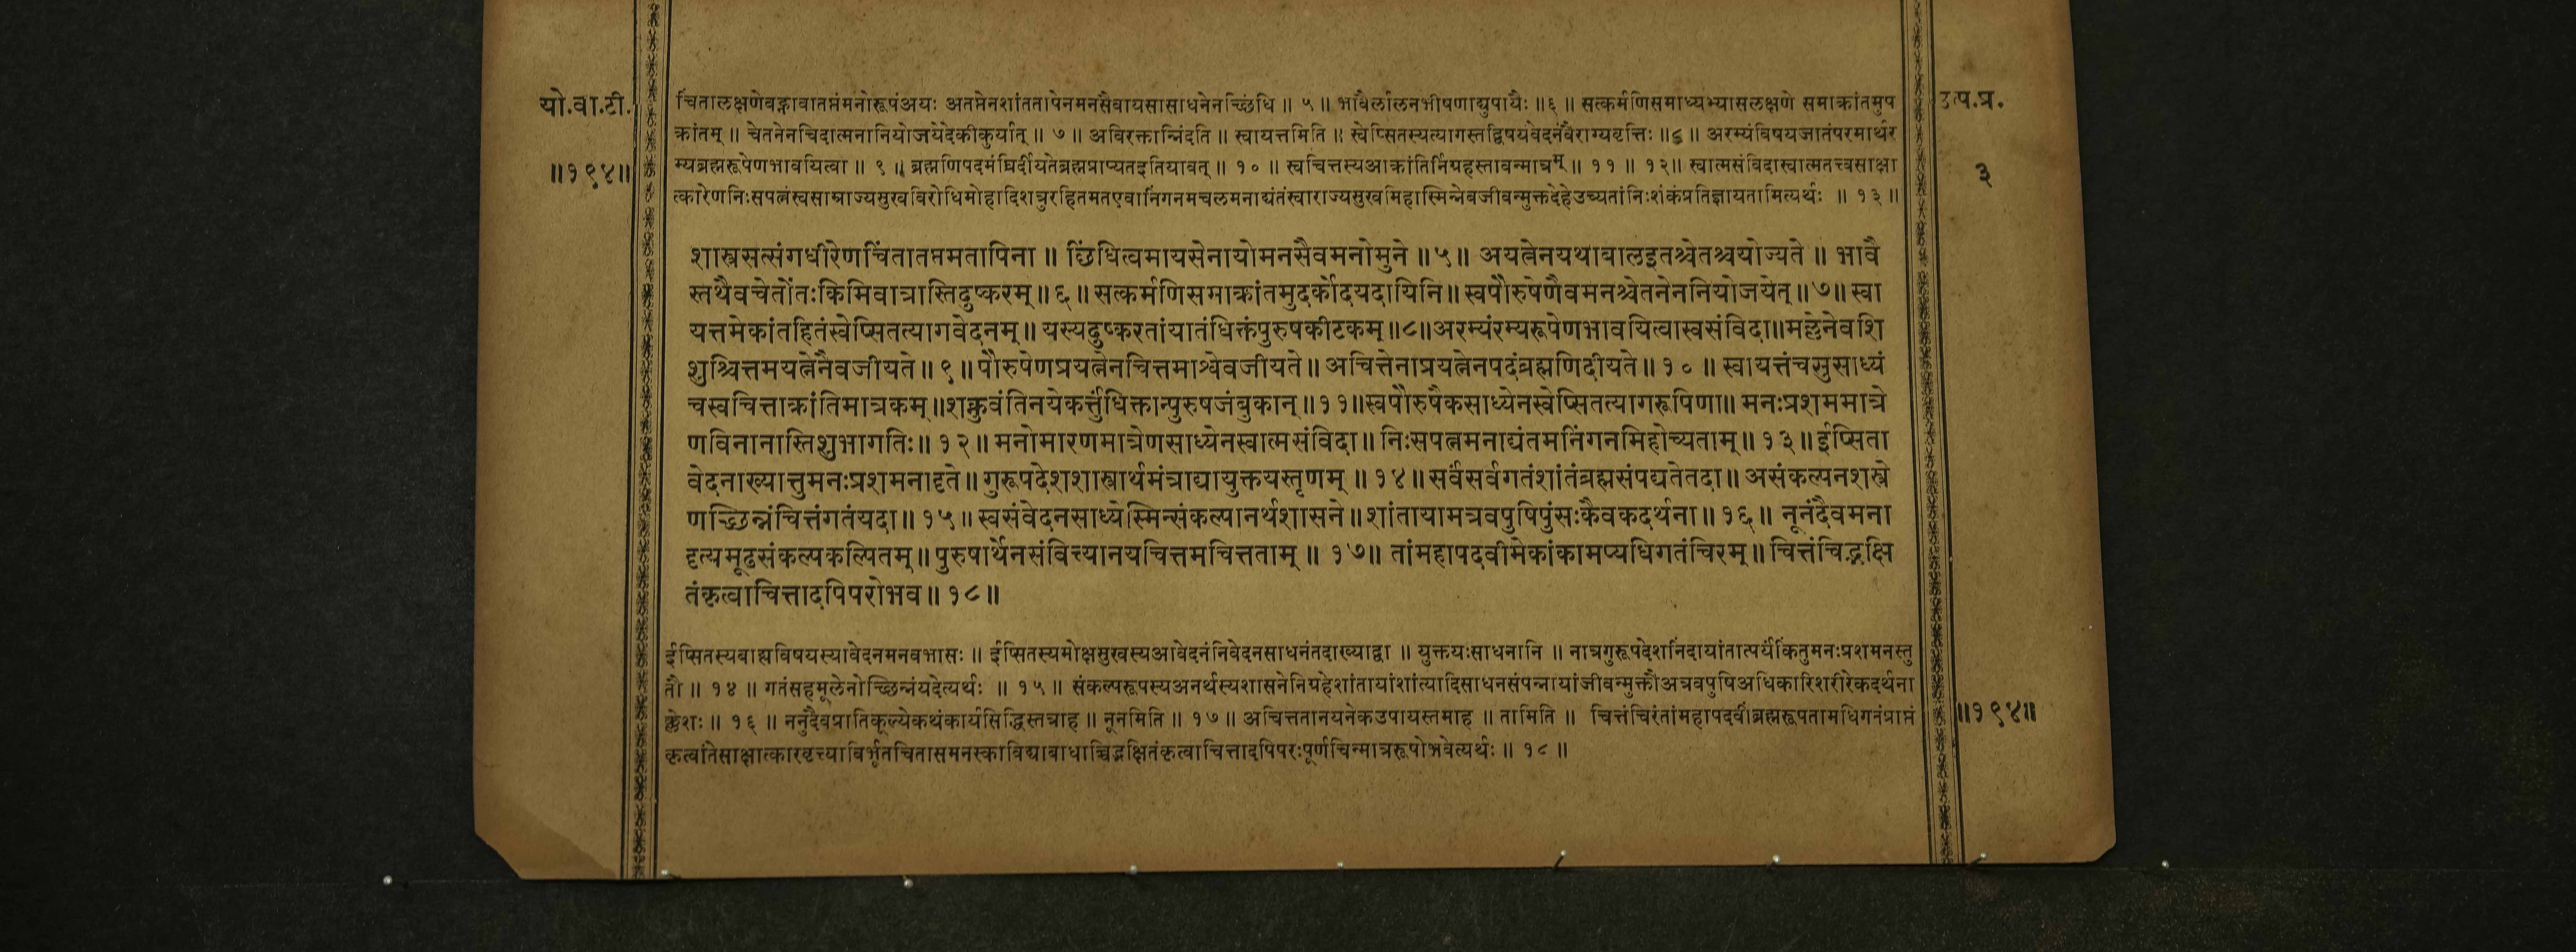 यो.वा.टी.
॥१९४॥
चिंतालक्षणेवह्नावातप्तंमनोरूपंअयः अतप्तेनशांततापेनमनसैवायसासाधनेनच्छिंधि ॥ ५ ॥ भावैर्लालनभीषणाद्युपायैः ॥६ ॥ सत्कर्मणिसमाध्यभ्यासलक्षणे समाक्रांतमुप
क्रांतम् ॥ चेतनेनचिदात्मनानियोजयेदेकीकुर्यात् ॥ ७ ॥ अविरक्तान्निंदति ॥ स्वायत्तमिति ॥ स्वेप्सितस्यत्यागस्तद्विषयवेदनंवैराग्यवृत्तिः ॥८ ॥ अरम्यंविषयजातंपरमार्थर
म्यब्रह्मरूपेणभावयित्वा ॥ ९ ॥ ब्रह्मणिपदमंघ्रिर्दीयतेब्रह्मप्राप्यतइतियावत् ॥ १० ॥ स्वचित्तस्यआक्रांतिर्निग्रहस्तावन्मात्रम् ॥ ११ ॥ १२॥ स्वात्मसंविदास्वात्मतत्त्वसाक्षा
त्कारेणनिःसपत्नंस्वसाम्राज्यसुखविरोधिमोहादिशत्रुरहितमतएवानिंगनमचलमनाद्यंतंस्वाराज्यसुखमिहास्मिन्नेवजीवन्मुक्तदेहेउच्यतांनिःशंकंप्रतिज्ञायतामित्यर्थः ॥ १३॥
शास्त्रसत्संगधीरेणचिंतातप्तमतापिना ॥ छिंधित्वमायसेनायोमनसैवमनोमुने ॥५॥ अयत्नेनयथाबालइतश्चेतश्चयोज्यते ॥ भावै
स्तथैवचेतोंतःकिमिवात्रास्तिदुष्करम्॥६॥सत्कर्मणिसमाक्रांतमुदर्कोदयदायिनि॥स्वपौरुषेणैवमनश्चेतनेननियोजयेत्॥७॥स्वा
यत्तमेकांतहितंस्वेप्सितत्यागवेदनम्॥यस्यदुष्करतांयातंधिक्तंपुरुषकीटकम्॥८॥अरम्यंरम्यरूपेणभावयित्वास्वसंविदा॥मल्लेनेवशि
शुश्चित्तमयत्नेनैवजीयते॥९॥पौरुषेणप्रयत्नेनचित्तमाश्वेवजीयते॥अचित्तेनाप्रयत्नेनपदंब्रह्मणिदीयते॥१०॥ स्वायत्तंचसुसाध्यं
चस्वचित्ताक्रांतिमात्रकम्॥शक्नुवंतिनयेकर्त्तुंधिक्तान्पुरुषजंबुकान्॥११॥स्वपौरुषैकसाध्येनस्वेप्सितत्यागरूपिणा॥मनःप्रशममात्रे
णविनानास्तिशुभागतिः॥१२॥मनोमारणमात्रेणसाध्येनस्वात्मसंविदा॥निःसपत्नमनाद्यंतमनिंगनमिहोच्यताम्॥१३॥ईप्सिता
वेदनाख्यात्तुमनःप्रशमनादृते॥गुरूपदेशशास्त्रार्थमंत्राद्यायुक्तयस्तृणम्॥१४॥सर्वंसर्वगतंशांतंब्रह्मसंपद्यतेतदा॥असंकल्पनशस्त्रे
णच्छिन्नंचित्तंगतंयदा॥१५॥स्वसंवेदनसाध्येस्मिन्संकल्पानर्थशासने॥शांतायामत्रवपुषिपुंसःकैवकदर्थना॥१६॥ नूनंदैवमना
दृत्यमूढसंकल्पकल्पितम्॥पुरुषार्थेनसंवित्त्यानयचित्तमचित्तताम् ॥ १७॥ तांमहापदवीमेकांकामप्यधिगतंचिरम्॥चित्तंचिद्भक्षि
तंकृत्वाचित्तादपिपरोभव॥१८॥
ईप्सितस्यबाह्यविषयस्यावेदनमनवभासः ॥ ईप्सितस्यमोक्षसुखस्यआवेदनंनिवेदनसाधनंतदाख्याद्वा ॥ युक्तयःसाधनानि ॥ नात्रगुरूपदेशनिंदायांतात्पर्यंकिंतुमनःप्रशमनस्तु
तौ ॥ १४ ॥ गतंसहमूलेनोच्छिन्नंयदेत्यर्थः ॥ १५ ॥ संकल्परूपस्यअनर्थस्यशासनेनिग्रहेशांतायांशांत्यादिसाधनसंपन्नायांजीवन्मुक्तौअत्रवपुषिअधिकारिशरीरेकदर्थना
क्लेशः ॥ १६ ॥ ननुदैवप्रातिकूल्येकथंकार्यसिद्धिस्तत्राह ॥ नूनमिति ॥ १७ ॥ अचित्ततानयनेकउपायस्तमाह ॥ तामिति ॥ चित्तंचिरंतांमहापदवींब्रह्मरूपतामधिगतंप्राप्तं
कृत्वांतेसाक्षात्कारवृत्त्याविर्भूतचितासमनस्काविद्याबाधाच्चिद्भक्षितंकृत्वाचित्तादपिपरःपूर्णचिन्मात्ररूपोभवेत्यर्थः ॥ १८ ॥
उत्प.प्र.
३
॥१९४॥